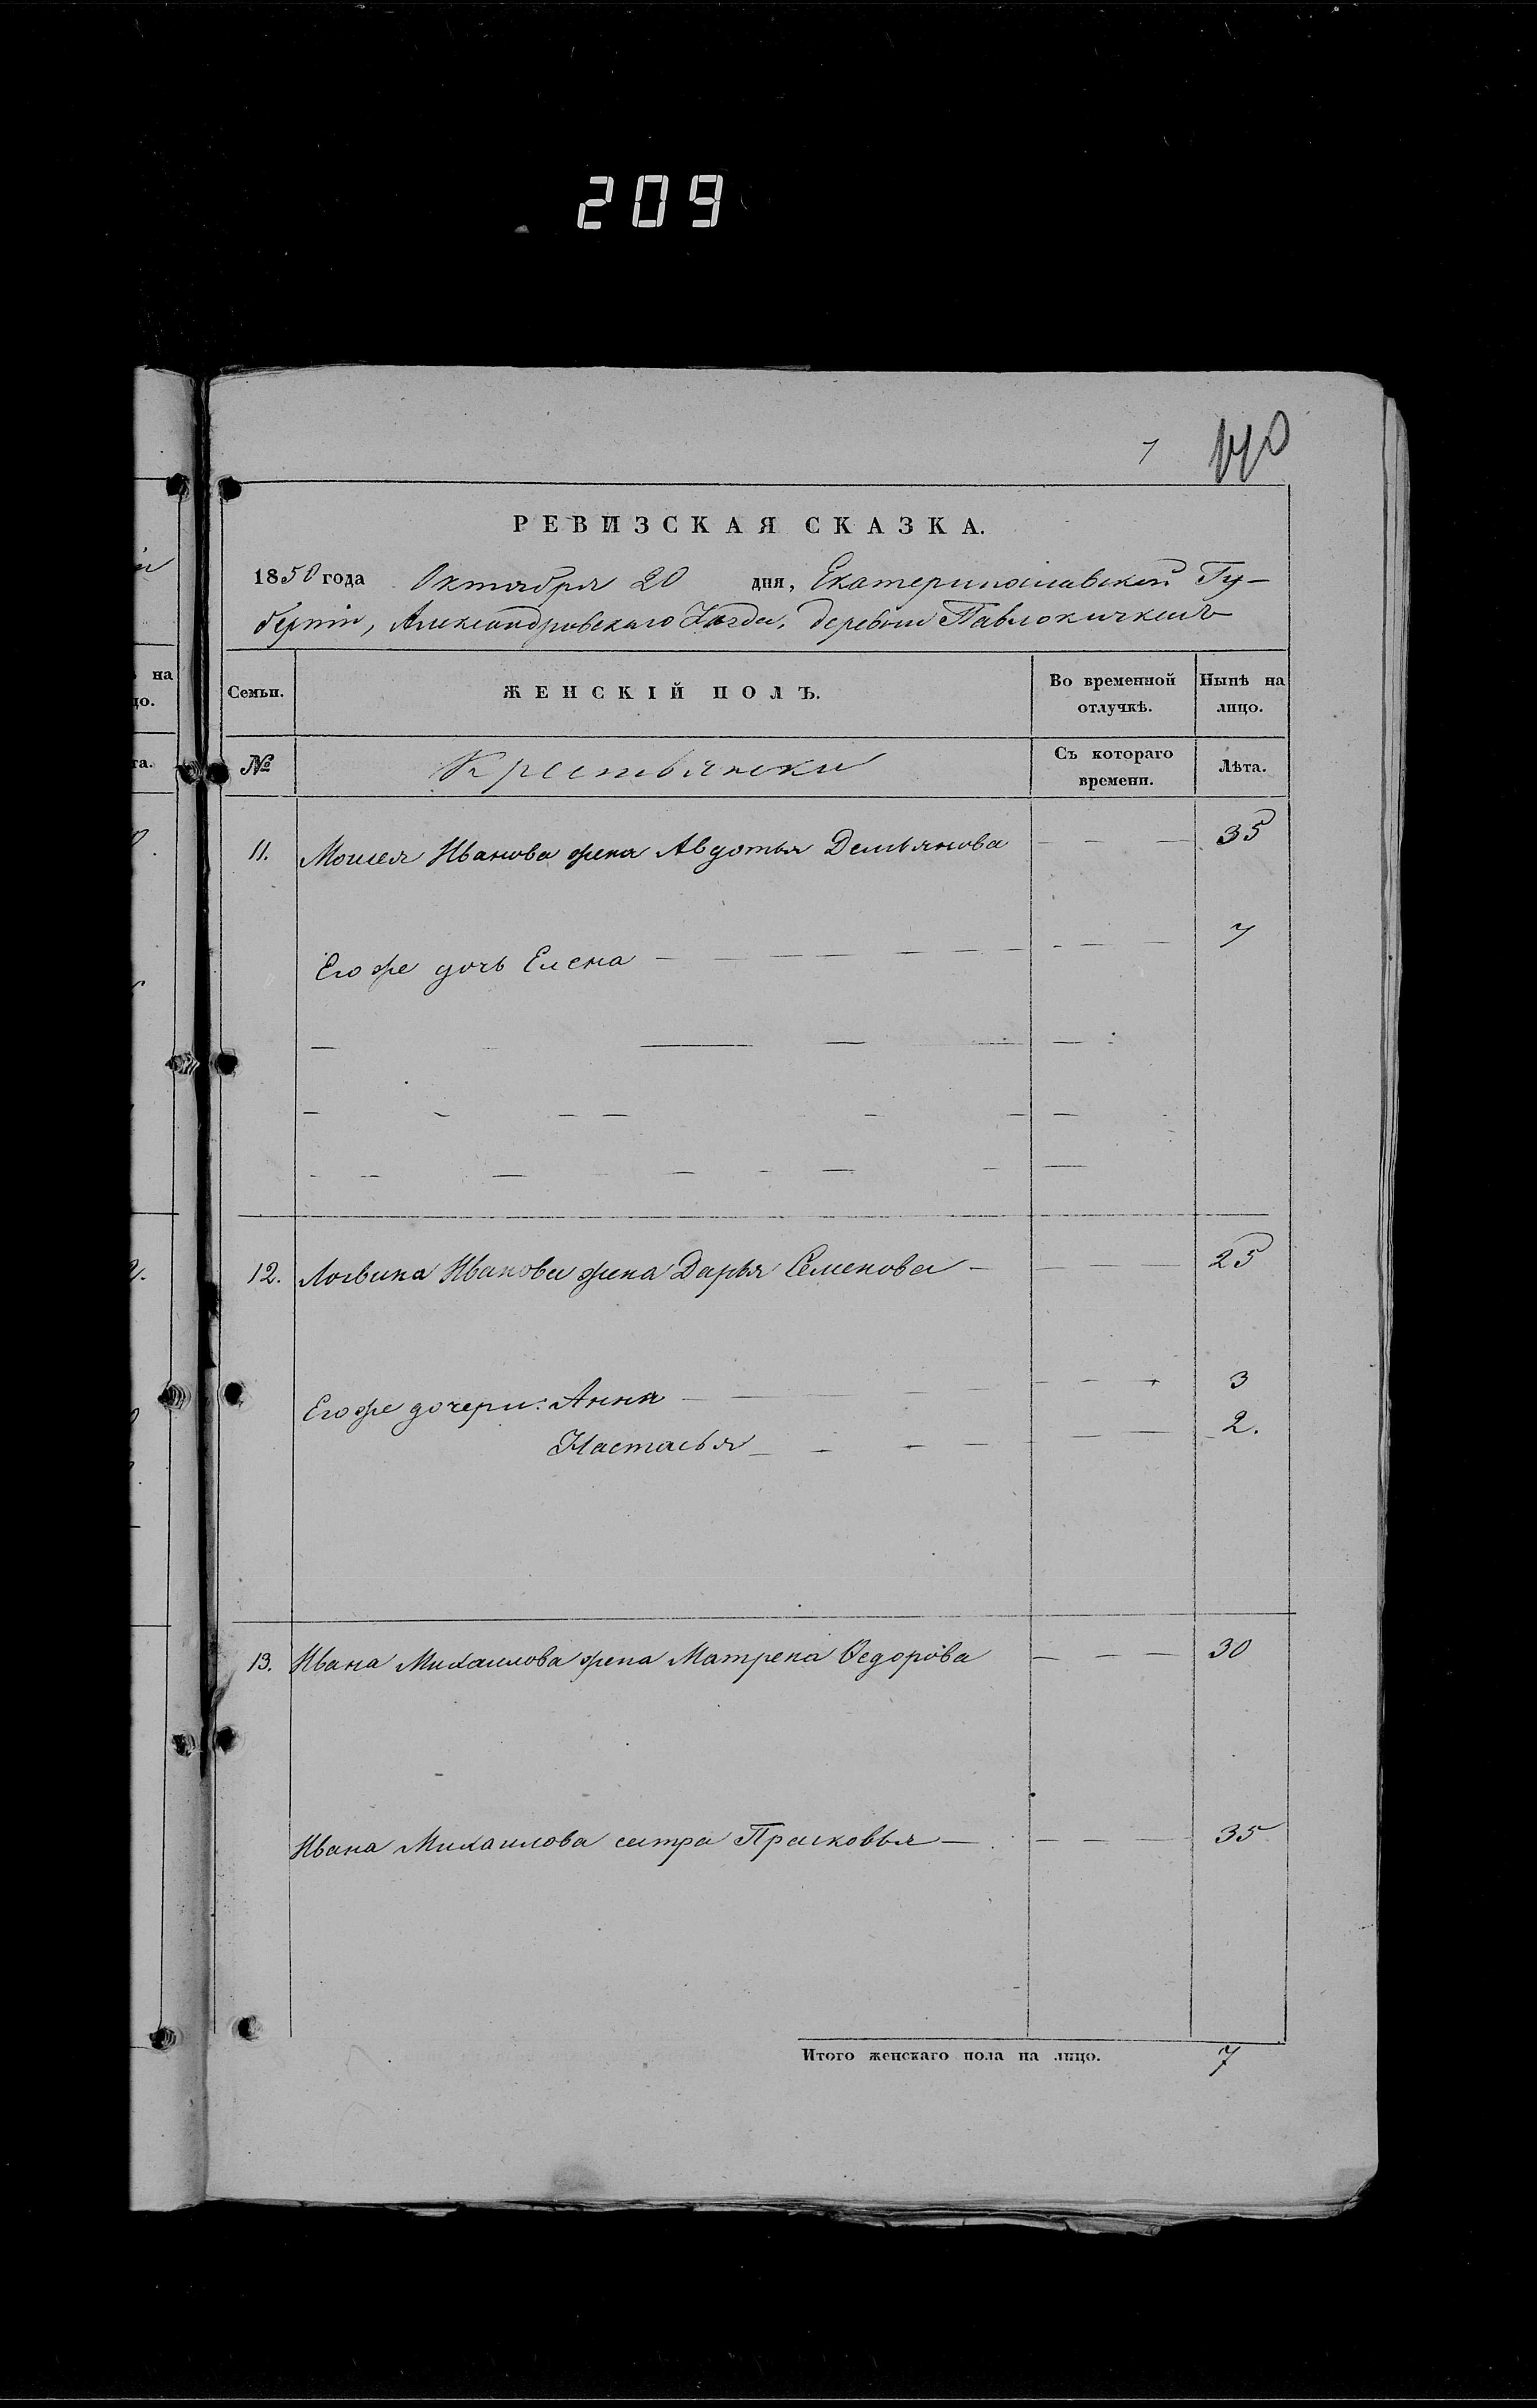 209
7
140
РЕВИЗСКАЯ СКАЗКА.
1850 года Октября 20 дня, Екатеринославской Гу-
берніи, Александровскаго Уѣзда, деревни Павлокичкасъ
на
Семьи. ЖЕНСКІЙ ПОЛЪ. Во временной отлучкѣ. Нынѣ на лицо.
№ Крестьянски Съ котораго времени. Лѣта.
11. Моисея Иванова жена Авдотья Демьянова — — — 35
Его же дочь Елена — — — 7
12. Логвина Иванова жена Дарья Семенова — — — 25
Его же дочери: Анна — — — 3
Настасья — — — 2.
13. Ивана Михаилова жена Матрена Ѳедорова — — — 30
Ивана Михаилова сестра Прасковья — — — 35
Итого женскаго пола на лицо. 7